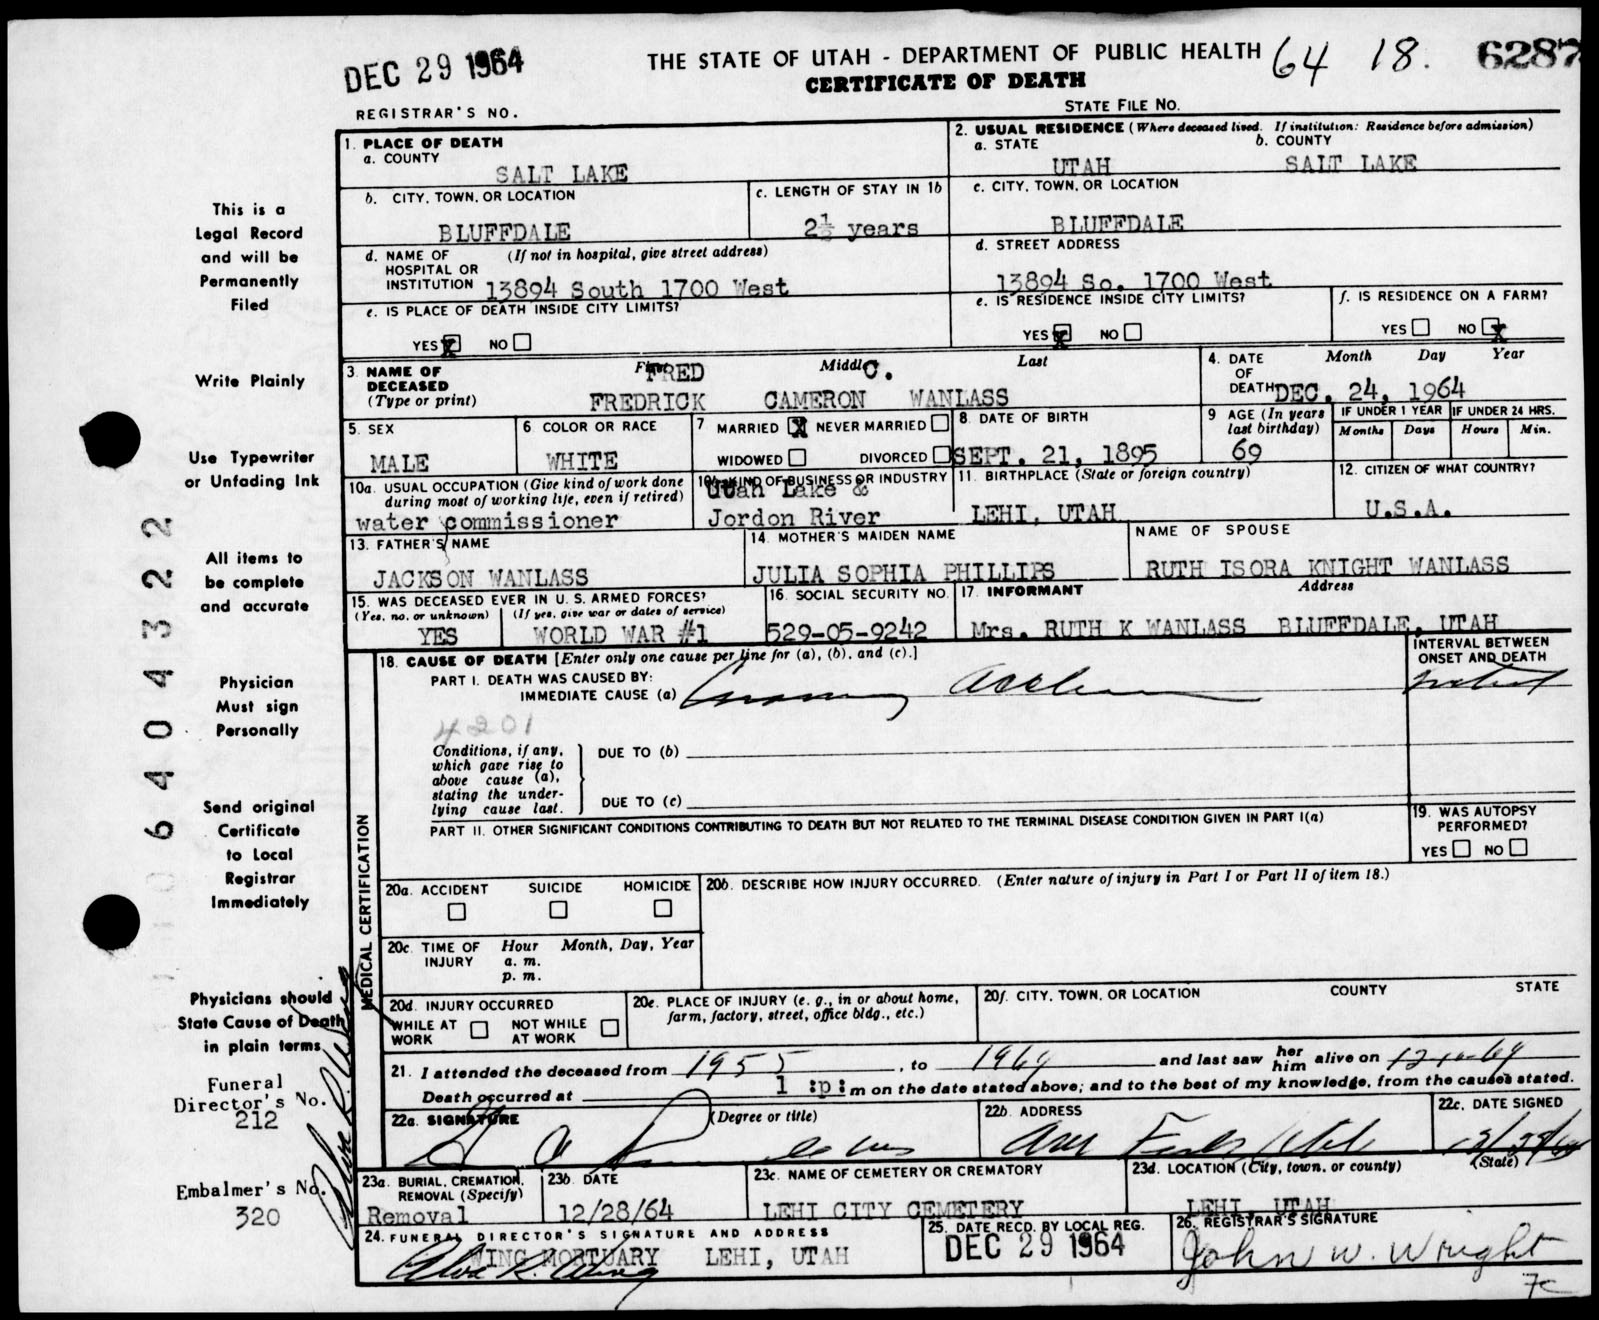 DEC 29 1964
THE STATE OF UTAH - DEPARTMENT OF PUBLIC HEALTH 64 18. 6287
CERTIFICATE OF DEATH
REGISTRAR'S NO.
STATE FILE NO.
1. PLACE OF DEATH
a. COUNTY
SALT LAKE
2. USUAL RESIDENCE (Where deceased lived. If institution: Residence before admission)
a. STATE
UTAH
b. COUNTY
SALT LAKE
b. CITY, TOWN, OR LOCATION
BLUFFDALE
c. LENGTH OF STAY IN 1b
2½ years
c. CITY, TOWN, OR LOCATION
BLUFFDALE
d. NAME OF HOSPITAL OR INSTITUTION (If not in hospital, give street address)
13894 South 1700 West
d. STREET ADDRESS
13894 So. 1700 West
e. IS PLACE OF DEATH INSIDE CITY LIMITS?
YES X NO
e. IS RESIDENCE INSIDE CITY LIMITS?
YES X NO
f. IS RESIDENCE ON A FARM?
YES NO X
3. NAME OF DECEASED (Type or print)
First Middle Last
FRED C.
FREDRICK CAMERON WANLASS
4. DATE OF DEATH
Month Day Year
DEC. 24, 1964
5. SEX
MALE
6 COLOR OR RACE
WHITE
7 MARRIED X NEVER MARRIED
WIDOWED DIVORCED
8 DATE OF BIRTH
SEPT. 21, 1895
9 AGE (In years last birthday)
69
IF UNDER 1 YEAR
Months Days
IF UNDER 24 HRS.
Hours Min.
10a. USUAL OCCUPATION (Give kind of work done during most of working life, even if retired)
water commissioner
10b. KIND OF BUSINESS OR INDUSTRY
Utah Lake &
Jordon River
11. BIRTHPLACE (State or foreign country)
LEHI, UTAH
12. CITIZEN OF WHAT COUNTRY?
U.S.A.
13. FATHER'S NAME
JACKSON WANLASS
14. MOTHER'S MAIDEN NAME
JULIA SOPHIA PHILLIPS
NAME OF SPOUSE
RUTH ISORA KNIGHT WANLASS
15. WAS DECEASED EVER IN U. S. ARMED FORCES?
(Yes, no, or unknown) (If yes, give war or dates of service)
YES WORLD WAR #1
16. SOCIAL SECURITY NO.
529-05-9242
17. INFORMANT Address
Mrs. RUTH K WANLASS BLUFFDALE, UTAH
18. CAUSE OF DEATH [Enter only one cause per line for (a), (b), and (c).]
INTERVAL BETWEEN ONSET AND DEATH
PART I. DEATH WAS CAUSED BY:
IMMEDIATE CAUSE (a)
4201
Conditions, if any, which gave rise to above cause (a), stating the underlying cause last.
DUE TO (b)
DUE TO (c)
PART II. OTHER SIGNIFICANT CONDITIONS CONTRIBUTING TO DEATH BUT NOT RELATED TO THE TERMINAL DISEASE CONDITION GIVEN IN PART I(a)
19. WAS AUTOPSY PERFORMED?
YES NO
MEDICAL CERTIFICATION
20a. ACCIDENT SUICIDE HOMICIDE
20b. DESCRIBE HOW INJURY OCCURRED. (Enter nature of injury in Part I or Part II of item 18.)
20c. TIME OF INJURY
Hour Month, Day, Year
a. m.
p. m.
20d. INJURY OCCURRED
WHILE AT WORK NOT WHILE AT WORK
20e. PLACE OF INJURY (e. g., in or about home, farm, factory, street, office bldg., etc.)
20f. CITY, TOWN, OR LOCATION COUNTY STATE
21. I attended the deceased from 1955, to 1964 and last saw her him alive on
Death occurred at 1 :p:m on the date stated above; and to the best of my knowledge, from the causes stated.
22a. SIGNATURE (Degree or title)
22b. ADDRESS
22c. DATE SIGNED
23a. BURIAL, CREMATION, REMOVAL (Specify)
Removal
23b. DATE
12/28/64
23c. NAME OF CEMETERY OR CREMATORY
LEHI CITY CEMETERY
23d. LOCATION (City, town, or county) (State)
LEHI, UTAH
24. FUNERAL DIRECTOR'S SIGNATURE AND ADDRESS
WING MORTUARY LEHI, UTAH
25. DATE RECD. BY LOCAL REG.
DEC 29 1964
26. REGISTRAR'S SIGNATURE
John W. Wright
This is a
Legal Record
and will be
Permanently
Filed
Write Plainly
Use Typewriter
or Unfading Ink
All items to
be complete
and accurate
Physician
Must sign
Personally
Send original
Certificate
to Local
Registrar
Immediately
Physicians should
State Cause of Death
in plain terms
Funeral
Director's No.
212
Embalmer's No.
320
6404322